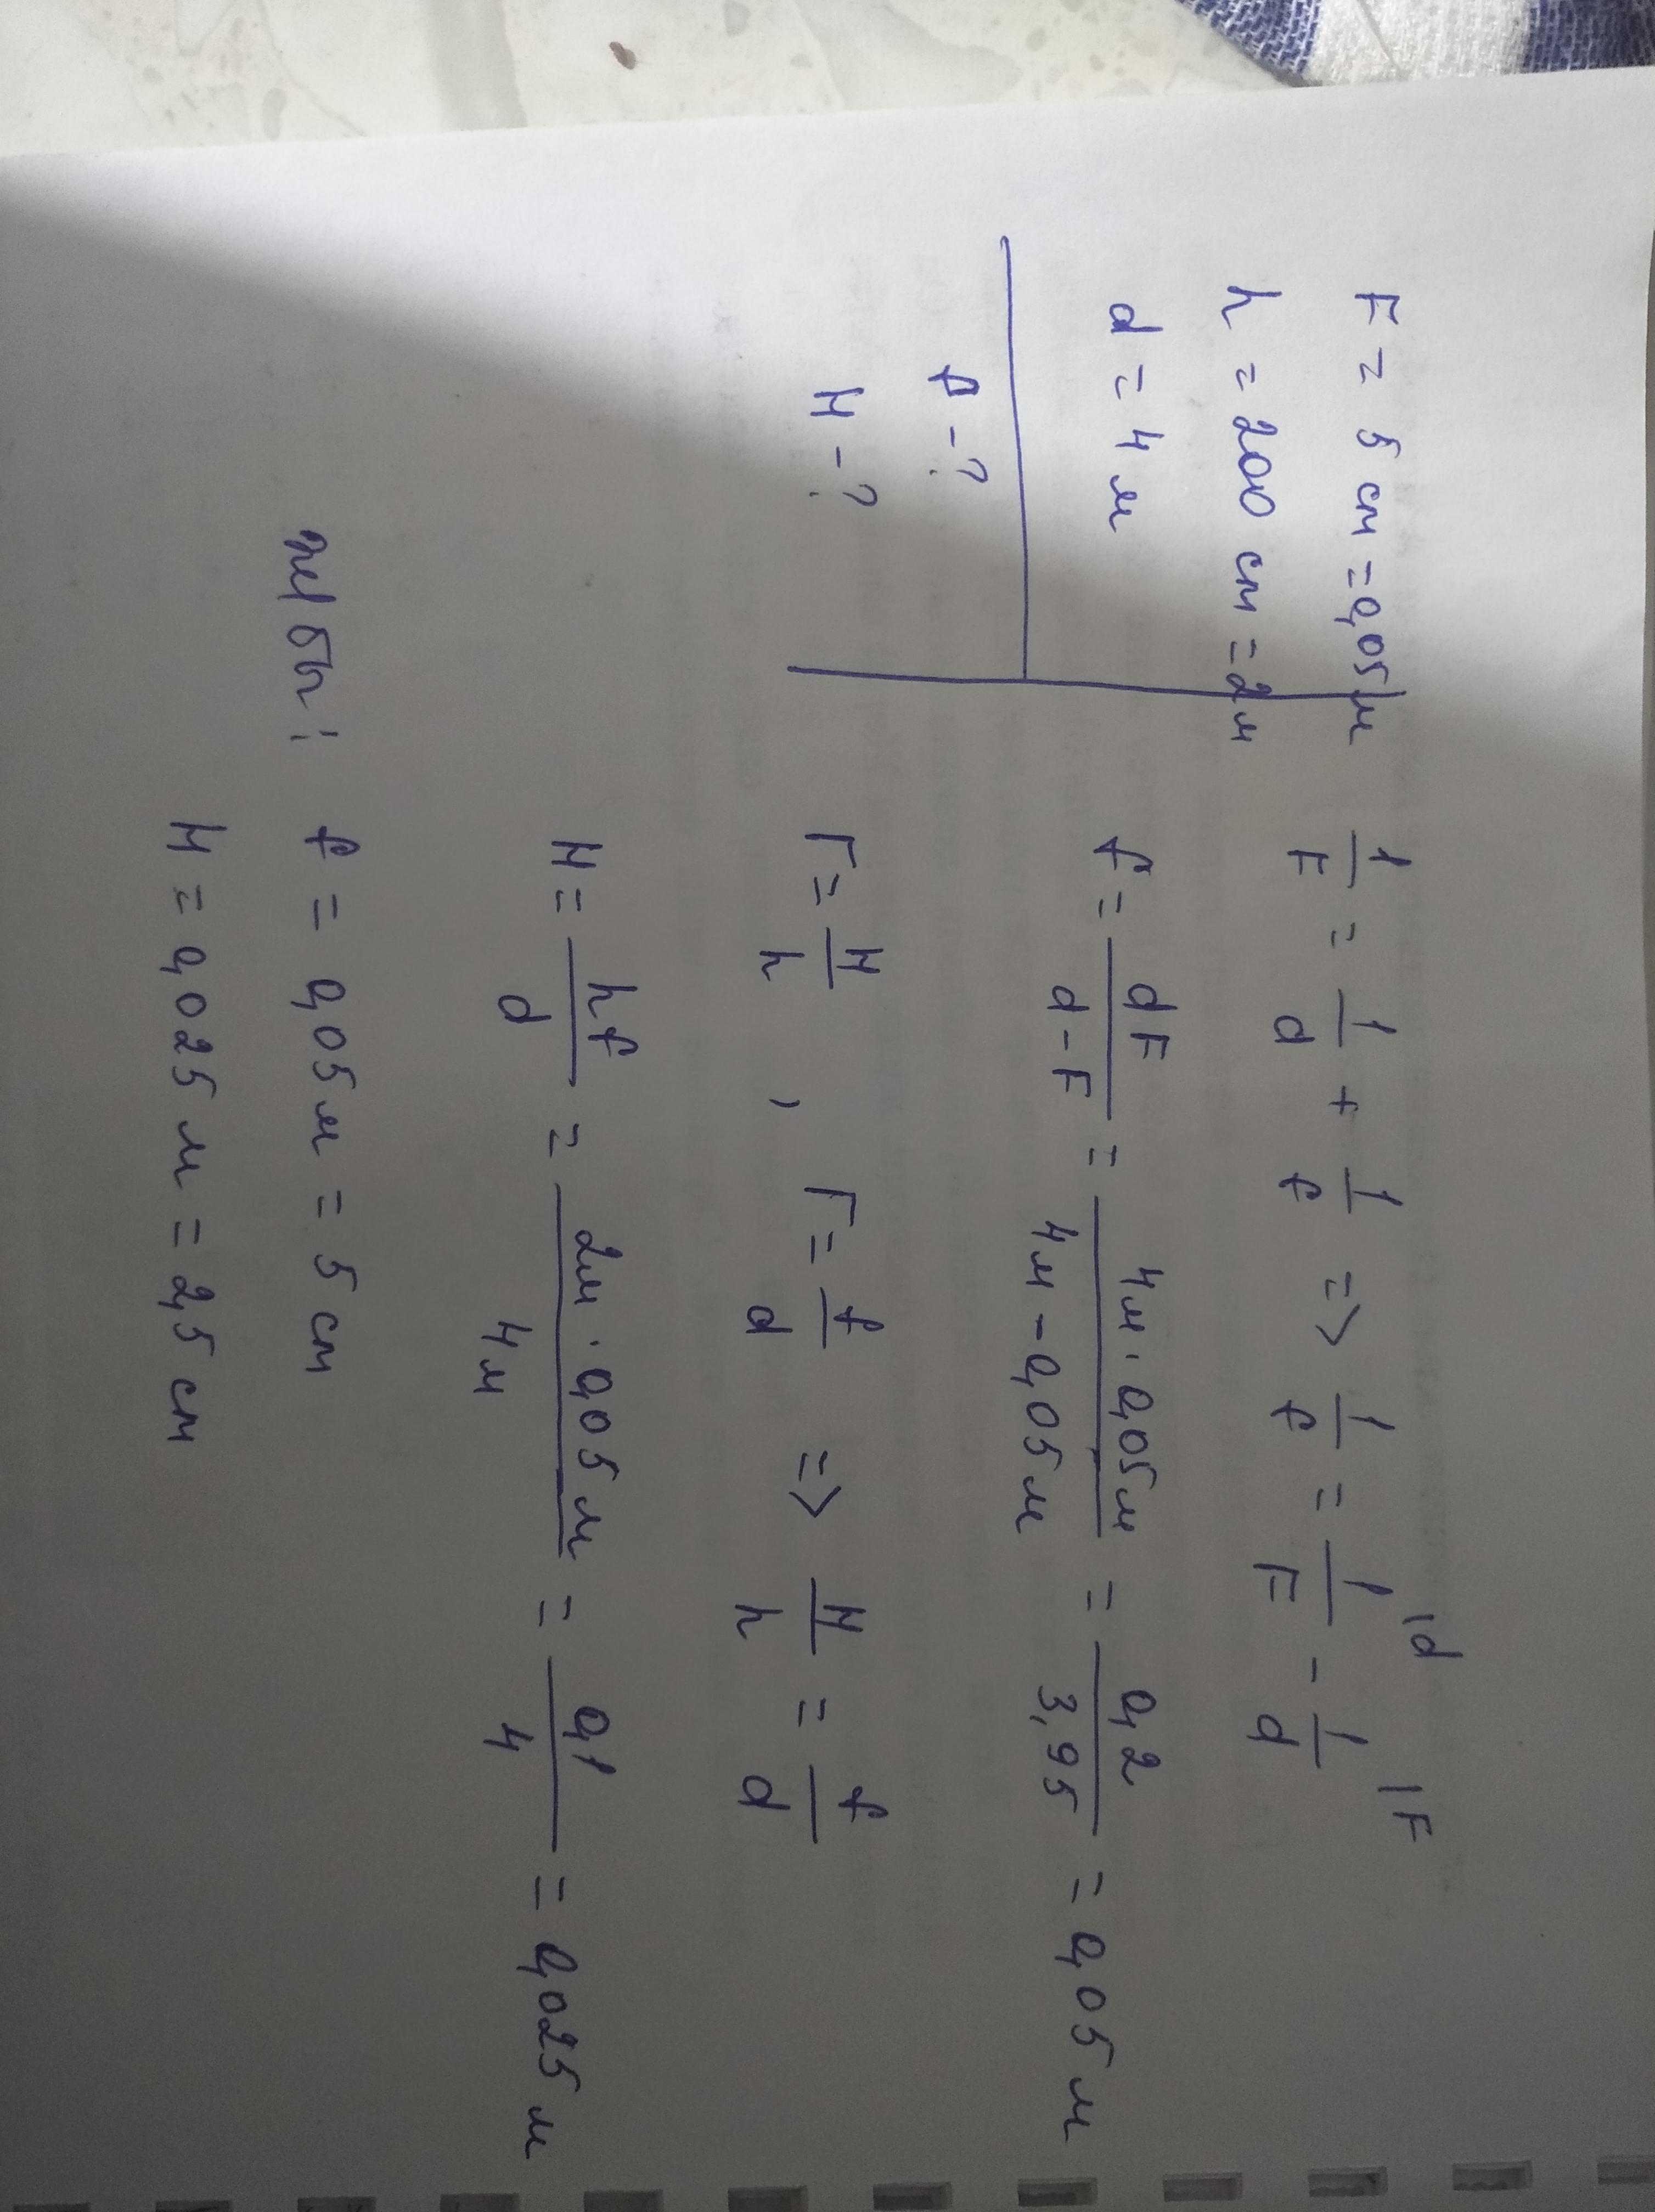 F = 5 см = 0,05 м
h = 200 см = 2 м
d = 4 м
f - ?
H - ?
1/F = 1/d + 1/f => 1/f = 1/F - 1/d |d |F
f = dF/d-F = 4м · 0,05м/4м - 0,05м = 0,2/3,95 = 0,05 м
Г = H/h , Г = f/d => H/h = f/d
H = hf/d = 2м · 0,05 м/4м = 0,1/4 = 0,025 м
f = 0,05 м = 5 см
H = 0,025 м = 2,5 см